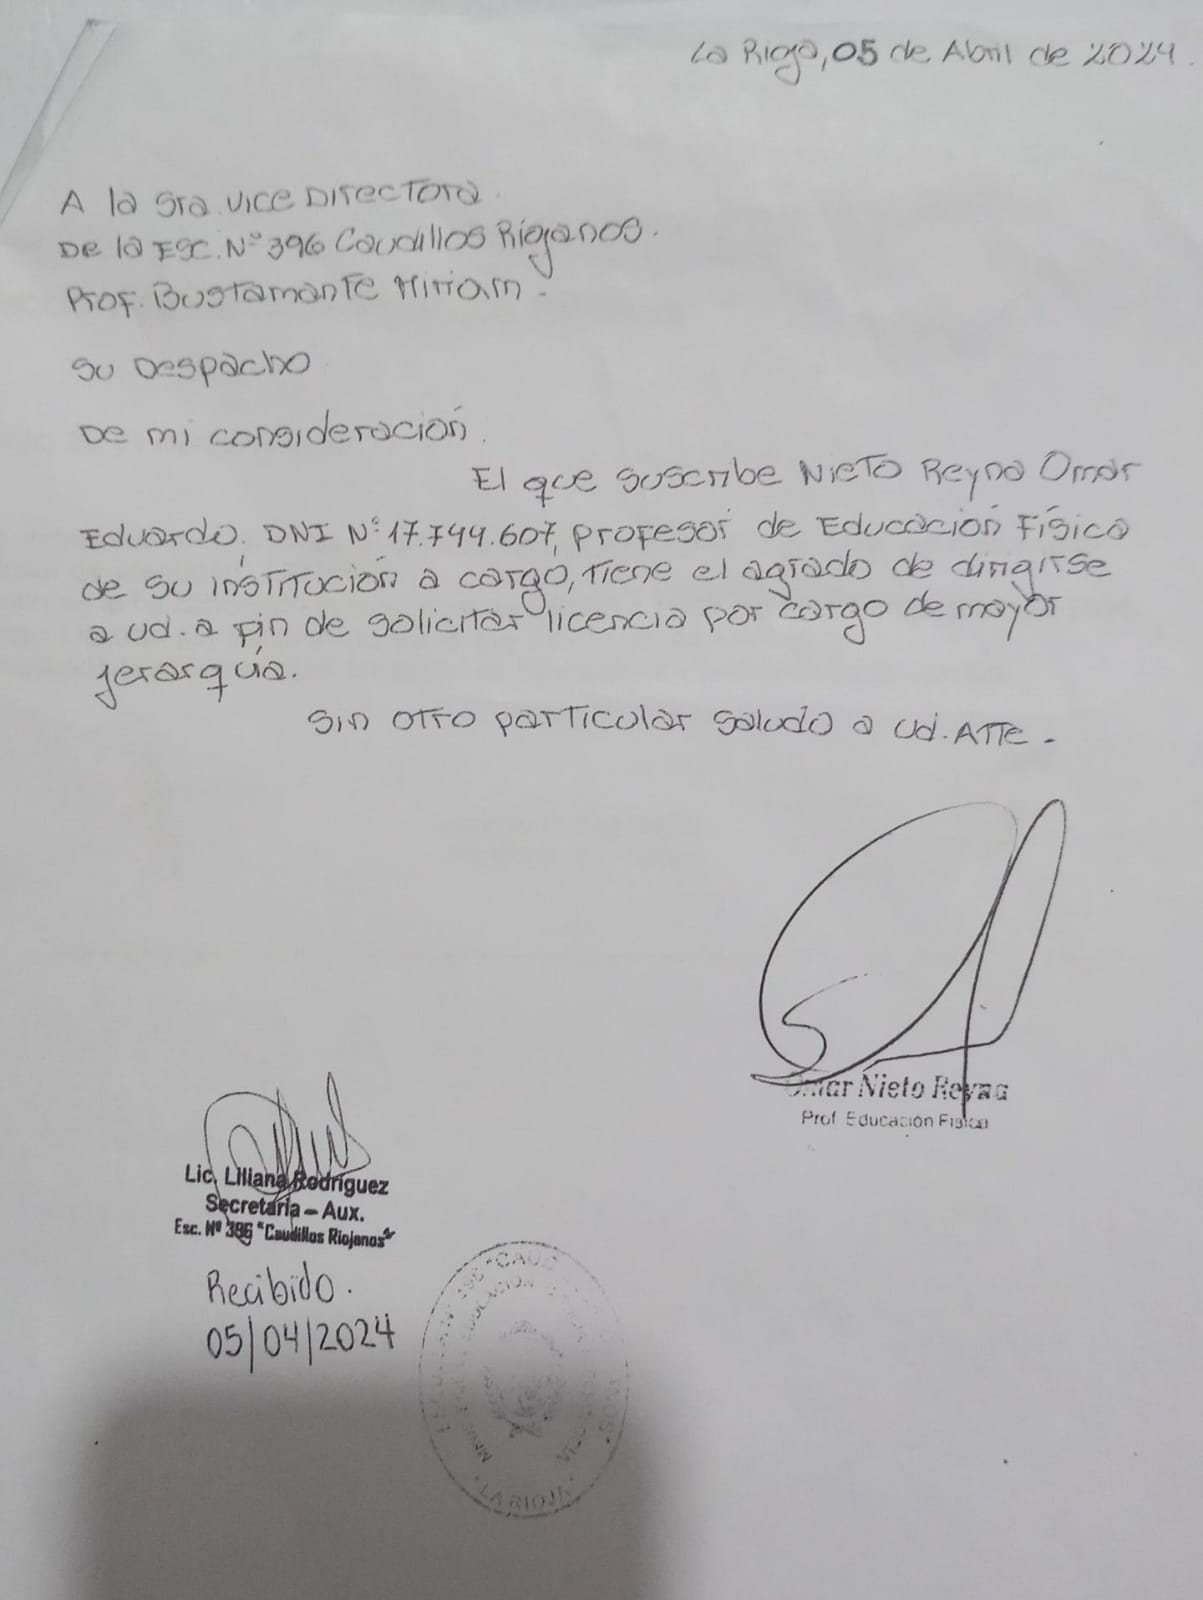 La Rioja, 05 de Abril de 2024.
A la Sra. Vice Directora.
De la ESC. Nº 396 Caudillos Riojanos.
Prof. Bustamante Miriam.
Su Despacho
De mi consideración.
El que suscribe Nieto Reyna Omar
Eduardo, DNI Nº 17.744.607, Profesor de Educación Física
de su institución a cargo, tiene el agrado de dirigirse
a ud. a fin de solicitar licencia por cargo de mayor
jerarquía.
Sin otro particular saludo a Ud. ATTE.
Omar Nieto Reyna
Prof. Educación Física
Lic. Liliana Rodríguez
Secretaria - Aux.
Esc. Nº 396 "Caudillos Riojanos"
Recibido.
05/04/2024
LA RIOJA